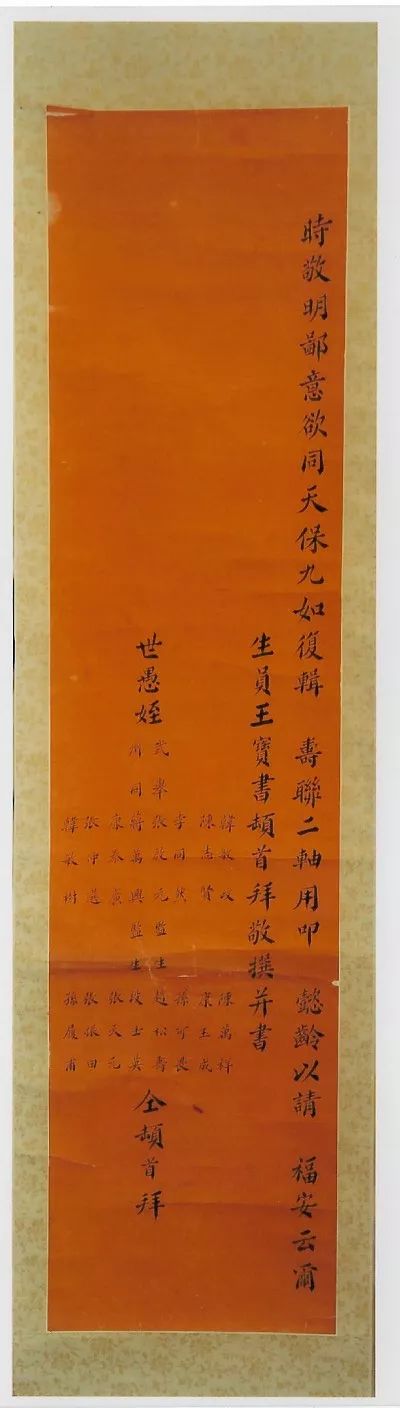 時敬明鄙意欲同天保九如復輯 壽聯二軸用叩 懿齡以請 福安云爾
生員王寶書頓首拜敬撰并書
世愚姪
韓敏 陳萬祥
陳志 成
李同 孫可
武舉張啟元 監生趙松壽
州同蔣萬興 監生段士英
康泰 張天元
張仲 張振田
韓敏樹 孫履甫
仝頓首拜